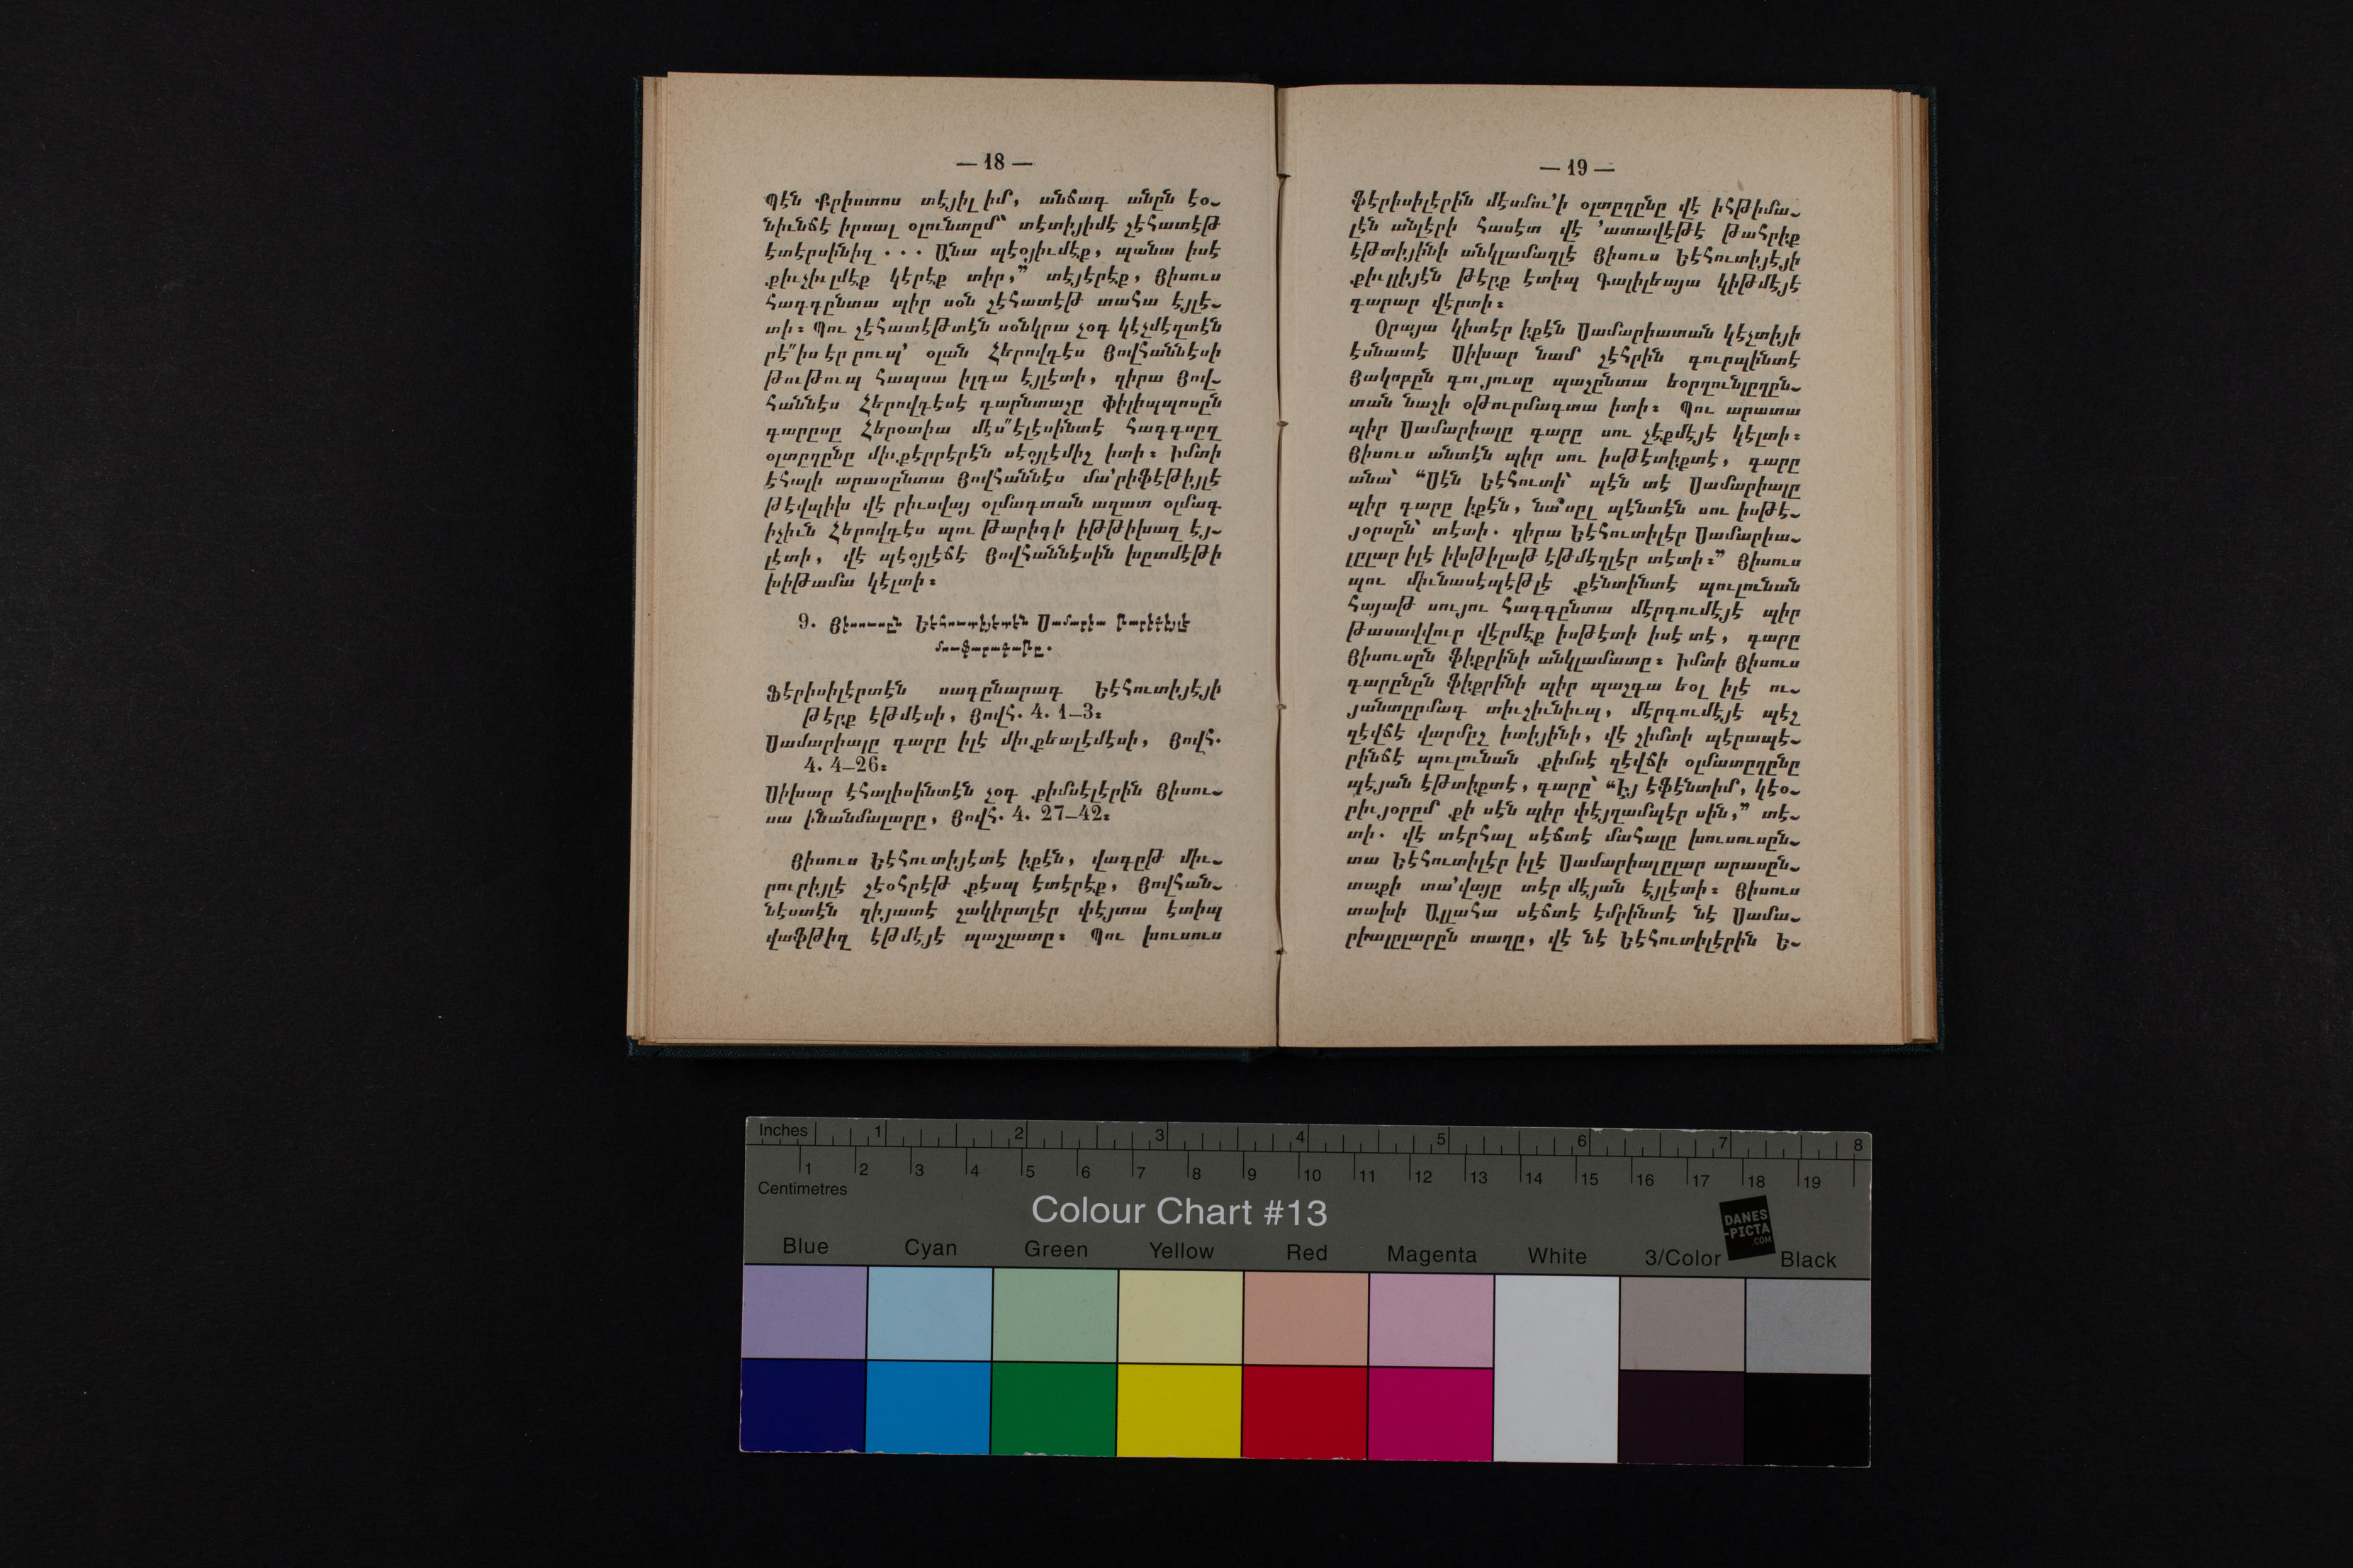 — 18 —
Պէն Քրիստոս տէյիլ իմ, անճագ անըն էօ֊
նիւնճէ իրսալ օլունտըմ՝ տէտիյիմէ շէհատէթ
էտէրսինիզ . . . Անա պէօյիւմէք, պանա իսէ
քիւչիւլմէք կէրէք տիր,” տէյէրէք, Յիսուս
հագգընտա պիր սօն շէհատէթ տահա էյլէ֊
տի։ Պու շէհատէթտէն սօնկրա չօգ կէչմէզտէն
րէ՛՛իս էր րուպ՛ օլան Հերովդէս Յովհաննէսի
թութուպ հապսա իլգա էյլէտի, զիրա Յով֊
հաննէս Հերովդէսէ գարնտաշը Փիլիպպոսըն
գարըսը Հերօտիա մէս՛՛էլէսինտէ հագգսըզ
օլտըղընը միւքէրրէրէն սէօյլէմիշ իտի։ Իմտի
էհալի արասընտա Յովհաննէս մա՛րիֆէթիյլէ
թէվպիխ վէ րիւսվայ օլմագտան ազատ օլմագ
իչիւն Հերովդէս պու թարիգի իթթիխազ էյ֊
լէտի, վէ պէօյլէճէ Յովհաննէսին խըտմէթի
խիթամա կէլտի։
9. Յիսուսըն Եէհուտիյէտէն Սամարիա թարիգիյլէ
մուֆարագաթը.
Ֆէրիսիլէրտէն սագընարագ Եէհուտիյէյի
թէրք էթմէսի, Յովհ. 4. 1—3։
Սամարիալը գարը իլէ միւքեալէմէսի, Յովհ.
4. 4—26։
Սիխար էհալիսինտէն չօգ քիմսէլէրին Յիսու֊
սա ինանմալարը, Յովհ. 4. 27—42։
Յիսուս Եէհուտիյէտէ իքէն, վագըթ միւ֊
րուրիյլէ շէօհրէթ քէսպ էտէրէք, Յովհան֊
նէստէն զիյատէ շակիրտլէր փէյտա էտիպ
վաֆթիզ էթմէյէ պաշլատը։ Պու խուսուս
— 19 —
Ֆէրիսիլէրին մէսմու՛ի օլտըղընը վէ իհթիմա֊
լէն անլէրի հասէտ վէ ՛ատավէթէ թահրիք
էթտիյինի անկլամաղլէ Յիսուս Եէհուտիյէյի
քիւլլիյէն թէրք էտիպ Գալիլեայա կիթմէյէ
գարար վէրտի։
Օրայա կիտէր իքէն Սամարիատան կէչտիյի
էսնատէ Սիխար նամ շէհրին գուրպինտէ
Յակոբըն գույուսը պաշընտա եօրղունլըղըն֊
տան նաշի օթուրմագտա իտի։ Պու արատա
պիր Սամարիալը գարը սու չէքմէյէ կէլտի։
Յիսուս անտէն պիր սու իսթէտիքտէ, գարը
անա՝ “Սէն Եէհուտի՝ պէն տէ Սամարիալը
պիր գարը իքէն, նա՞սըլ պէնտէն սու իսթէ֊
յօրսըն՝ տէտի. զիրա Եէհուտիլէր Սամարիա֊
լըլար իլէ իխթիլաթ էթմէզլէր տէտի։” Յիսուս
պու միւնասէպէթլէ քէնտինտէ պուլունան
հայաթ սույու հագգընտա մէրգումէյէ պիր
թասավվուր վէրմէք իսթէտի իսէ տէ, գարը
Յիսուսըն ֆիքրինի անկլամատը։ Իմտի Յիսուս
գարընըն ֆիքրինի պիր պաշգա եօլ իլէ ու֊
յանտըրմագ տիւշիւնիւպ, մէրգումէյէ պէշ
զէվճէ վարմըշ իտիյինի, վէ շիմտի պէրապէ֊
րինճէ պուլունան քիմսէ զէվճի օլմատըղընը
պէյան էթտիքտէ, գարը՝ “Էյ էֆէնտիմ, կէօ֊
րիւյօրըմ քի սէն պիր փէյղամպէր սին,” տէ֊
տի. վէ տէրհալ սէճտէ մահալը խուսուսըն֊
տա Եէհուտիլէր իլէ Սամարիալըլար արասըն֊
տաքի տա՛վայը տէր մէյան էյլէտի։ Յիսուս
տախի Ալլահա սէճտէ էմրինտէ նէ Սամա֊
րիալըլարըն տաղը, վէ նէ Եէհուտիլէրին Ե֊
Inches 1 2 3 4 5 6 7 8
1 2 3 4 5 6 7 8 9 10 11 12 13 14 15 16 17 18 19
Centimetres
Colour Chart #13
DANES
-PICTA
.COM
Blue Cyan Green Yellow Red Magenta White 3/Color Black